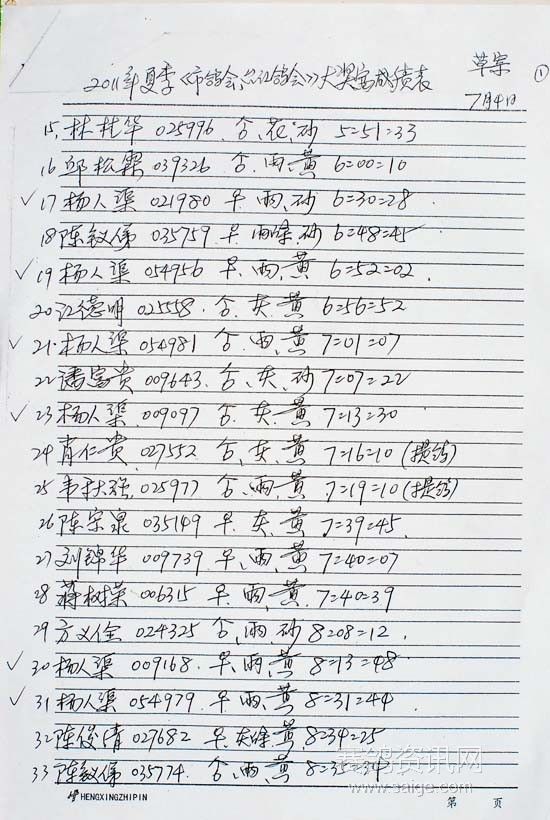 草案 ①
2011年夏季《市鸽会、沿江鸽会》大奖赛成绩表
7月4日
15, 林桂华 025996 合、花、砂 5=51=33
16 邱松霖 039326 合、雨、黄 6=00=10
✓ 17 杨人渠 021980 早、雨、砂 6=30=28
18 陈毅俤 035759 早、雨绛、砂 6=48=45
✓ 19 杨人渠 054956 早、雨、黄 6=52=02
20 江德明 025558 合、灰、黄 6=56=52
✓ 21 杨人渠 054981 合、雨、黄 7=01=07
22 潘富贵 009643 合、灰、砂 7=07=22
✓ 23 杨人渠 009097 合、灰、黄 7=13=30
24 肖仁贵 027552 合、灰、黄 7=16=10
25 韦秋强 025977 合、雨、黄 7=19=10
26 陈宗泉 035149 早、灰、黄 7=39=45
27 刘锦华 009739 早、雨、黄 7=40=07
28 蒋树荣 006315 早、雨、黄 7=40=39
29 方义全 024325 合、雨、砂 8=08=12
✓ 30 杨人渠 009168 早、雨、黄 8=13=48
✓ 31 杨人渠 054979 早、雨、黄 8=31=44
32 陈俊清 027682 早、灰绛、黄 8=34=25
33 陈毅俤 035774 合、雨、黄 8=35=34
赛鸽资讯网
www.saige.com
HENGXINGZHIPIN 第 页